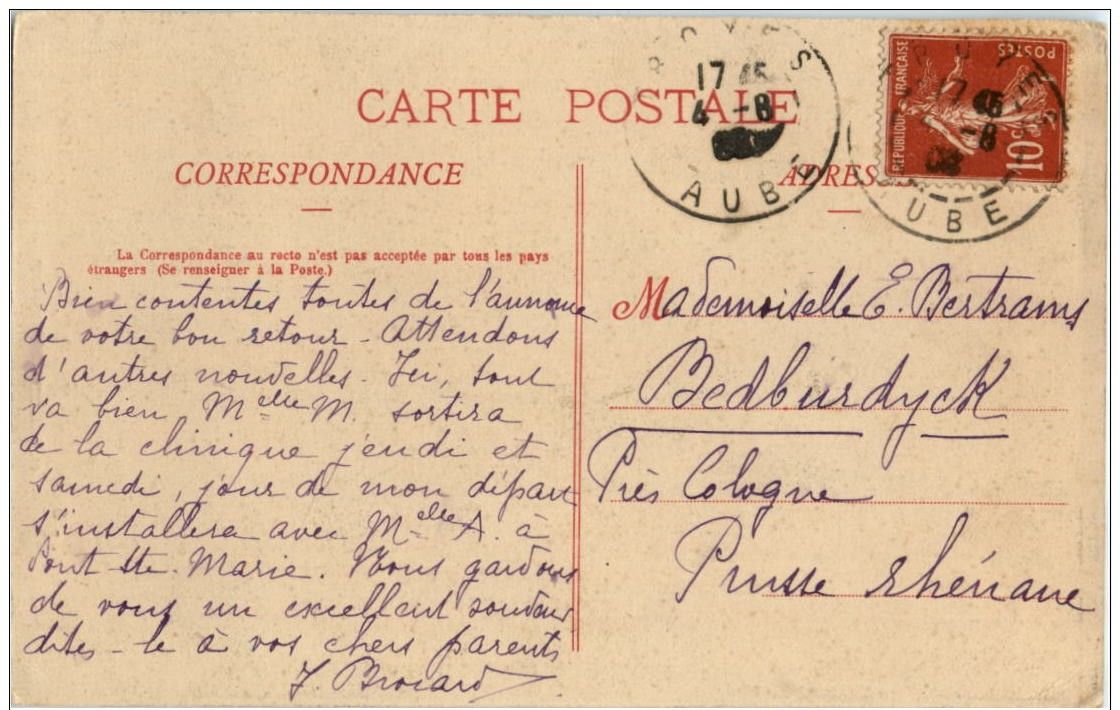 CARTE POSTALE
CORRESPONDANCE
La Correspondance au recto n'est pas acceptée par tous les pays
étrangers (Se renseigner à la Poste.)
Bien contentes toutes de l'annonce
de votre bon retour - Attendons
d'autres nouvelles. Ici, tout
va bien Melle M. sortira
de la clinique jeudi et
samedi, jour de mon départ
s'installera avec Melle A. à
Pont Ste-Marie. Nous gardons
de vous un excellent souvenir
dites-le à vos chers parents
J. Brocard
TROYES
17 45
4 -8
AUBE
ADRESSE
RÉPUBLIQUE FRANÇAISE
POSTES
10c
TROYES
17 45
-8
AUBE
Mademoiselle E. Bertrams
Bedburdyck
Près Cologne
Prusse rhénane